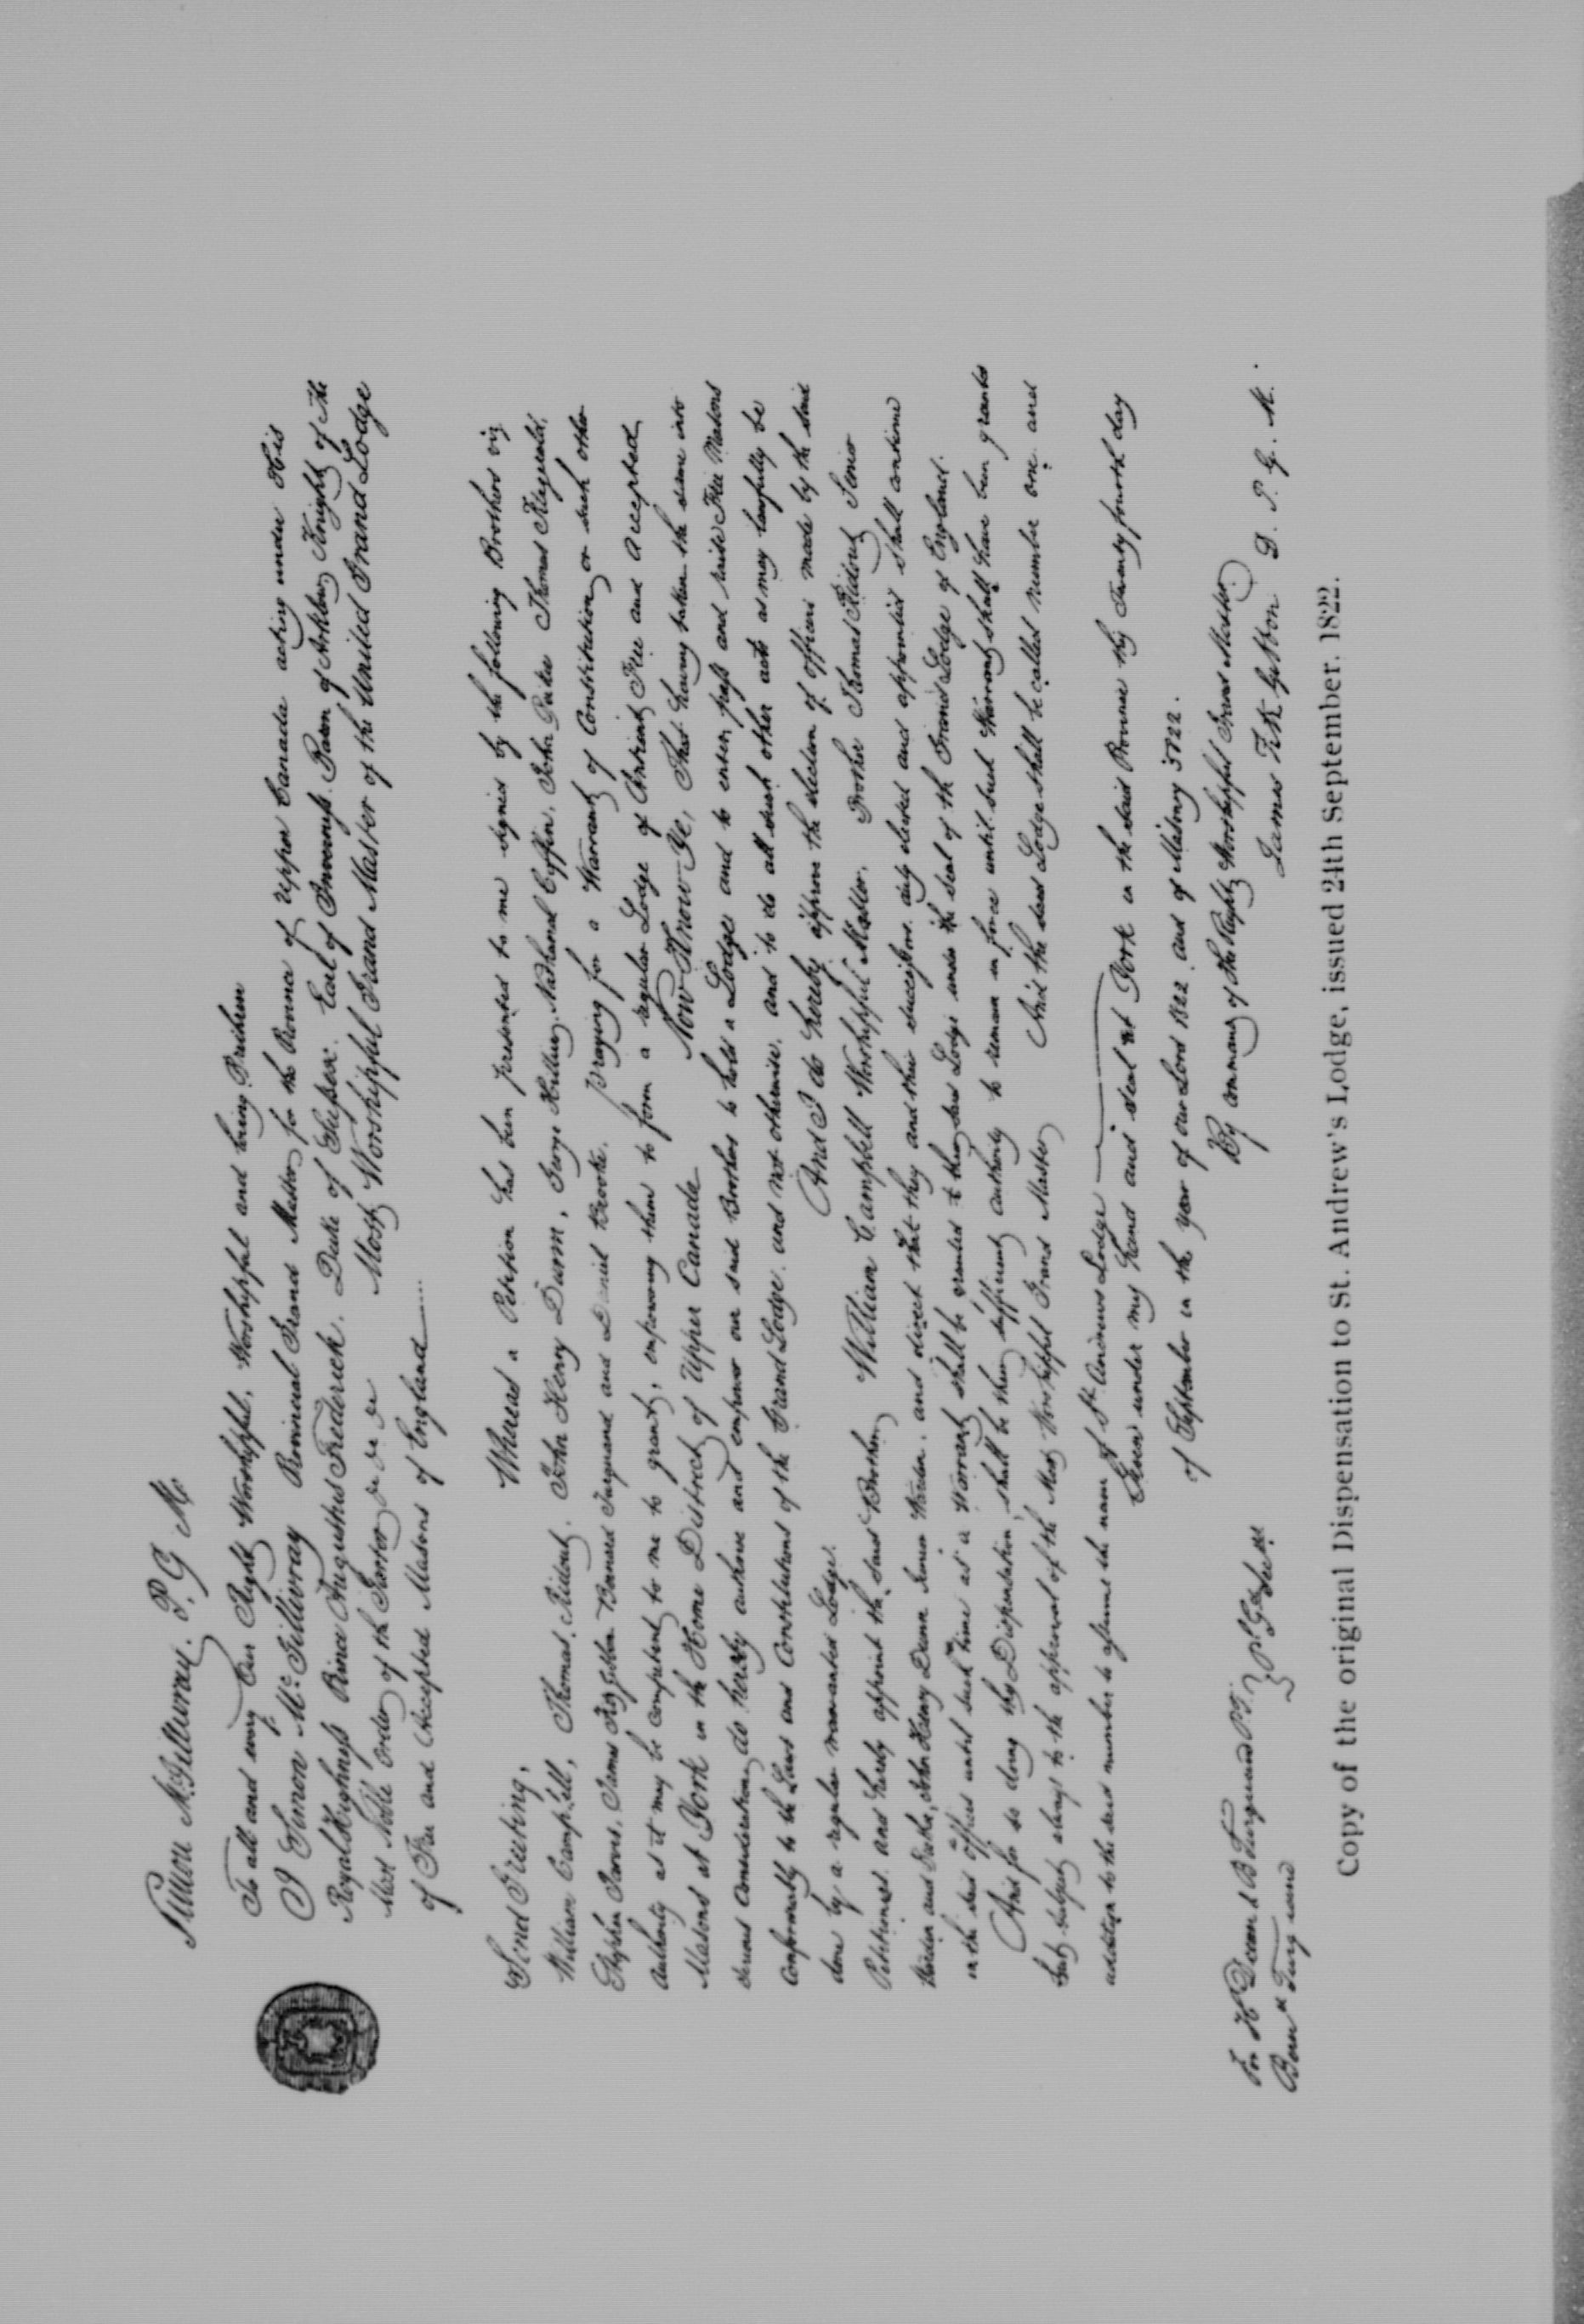 Simon McGillivray. P. G. M.
To all and every Our Right Worshipful, Worshipful and loving Brethren
I Simon McGillivray Provincial Grand Master for the Province of Upper Canada acting under His
Royal Highness Prince Augustus Frederick. Duke of Sussex. Earl of Inverness. Baron of Arklow, Knight of the
Most Noble Order of the Garter &c &c &c Most Worshipful Grand Master of the United Grand Lodge
of Free and Accepted Masons of England
Send Greeting, Whereas a Petition has been presented to me signed by the following Brothers viz
William Campbell, Thomas Ridout, John Henry Dunn, George Hillier, Nathaniel Coffin, John Thomas Fitzgerald,
Stephen Jarvis, James FitzGibbon Bernard Turquand and Daniel Brooke. Praying for a Warrant of Constitution or such other
Authority as it may be competent to me to grant, empowering them to form a regular Lodge of Antient Free and Accepted
Masons at York in the Home District of Upper Canada Now Know Ye, That having taken the same into
serious Consideration do hereby authorise and empower our said Brothers to hold a Lodge and to enter pass and raise Free Masons
Conformably to the Laws and Constitutions of the Grand Lodge. and not otherwise. and to do all such other acts as may lawfully be
done by a regular warranted Lodge. And I do hereby approve the election of officers made by the said
Petitioners and hereby appoint the said Brother William Campbell Worshipful Master. Brother Thomas Ridout Senior
Warden and John Henry Dunn Junior Warden. and direct that they and their successors duly elected and appointed shall continue
in the said offices until such time as a Warrant shall be granted to the said Lodge under the seal of the Grand Lodge of England.
And for so doing this Dispensation shall be their sufficient authority to remain in force until such Warrant shall have been granted
but subject always to the approval of the Most Worshipful Grand Master And the said Lodge shall be called Number one and
addition to the said number to assume the name of St. Andrews Lodge
Given under my Hand and seal at York in the said Province this twenty fourth day
of September in the year of our Lord 1822. and of Masonry 5822.
By command of the Right Worshipful Grand Master
James FitzGibbon D. P. G. M.
For H Dean & B Turquand
Bern Turquand
Copy of the original Dispensation to St. Andrew's Lodge, issued 24th September, 1822.